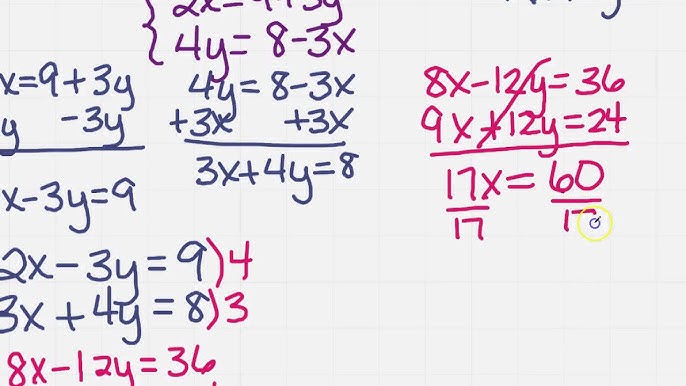 2x=9+3y
4y=8-3x
x=9+3y
y -3y
x-3y=9
4y=8-3x
+3x +3x
3x+4y=8
8x-12y=36
9x+12y=24
17x=60
17 17
2x-3y=9)4
3x+4y=8)3
8x-12y=36